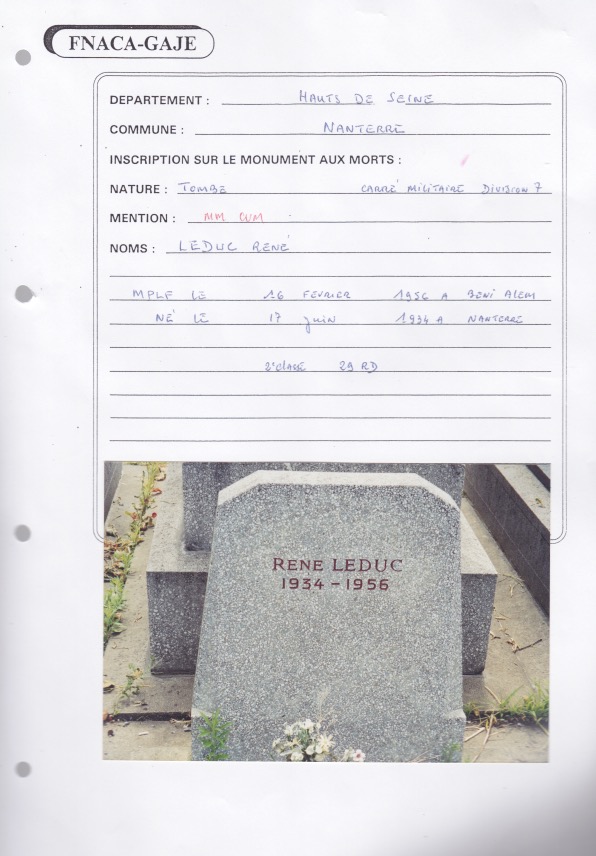 FNACA-GAJE
DEPARTEMENT : HAUTS DE SEINE
COMMUNE : NANTERRE
INSCRIPTION SUR LE MONUMENT AUX MORTS :
NATURE : TOMBE CARRÉ MILITAIRE DIVISION 7
MENTION : MM CVM
NOMS : LEDUC RENÉ
MPLF LE 16 FÉVRIER 1956 A BENI ALEM
NÉ LE 17 juin 1934 A NANTERRE
2e classe 29 RD
RENE LEDUC
1934 - 1956